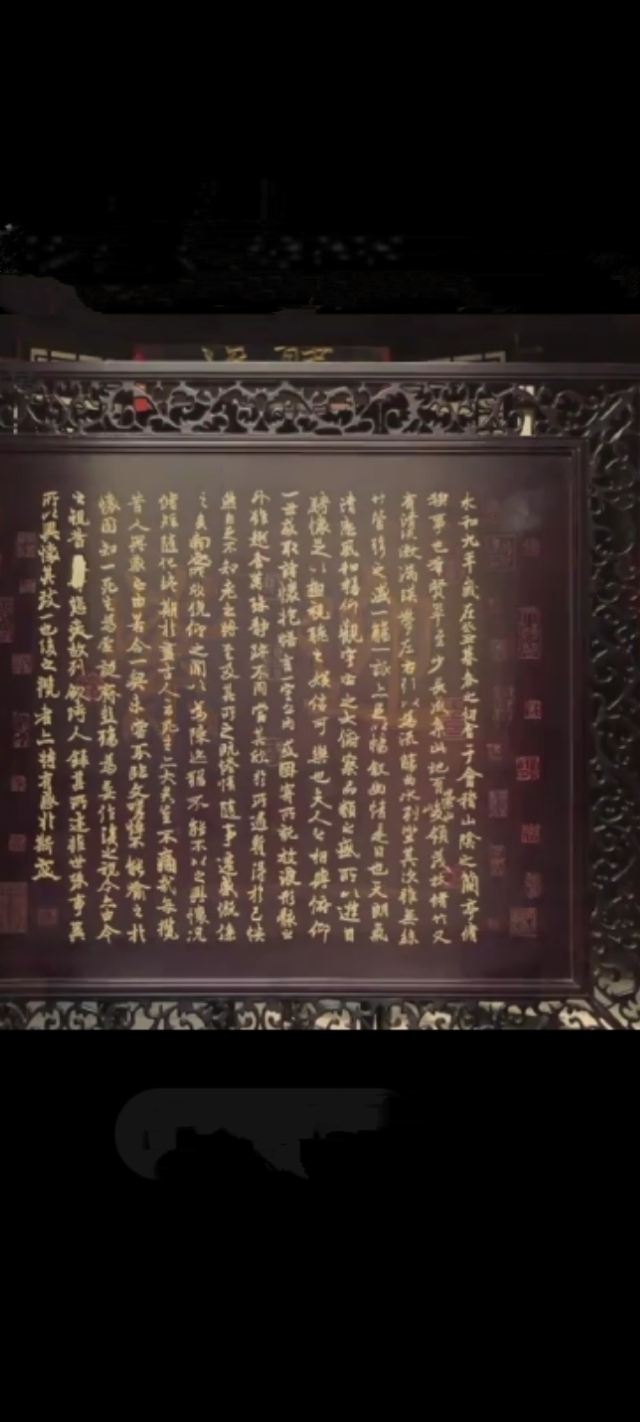 永和九年歲在癸丑暮春之初會于會稽山陰之蘭亭脩
稧事也群賢畢至少長咸集此地有崇山峻領茂林脩竹又
有清流激湍暎帶左右引以為流觴曲水列坐其次雖無絲
竹管弦之盛一觴一詠亦足以暢敘幽情是日也天朗氣
清惠風和暢仰觀宇宙之大俯察品類之盛所以遊目
騁懷足以極視聽之娛信可樂也夫人之相與俯仰
一世或取諸懷抱悟言一室之內或因寄所託放浪形骸之
外雖趣舍萬殊靜躁不同當其欣於所遇暫得於己怏
然自足不知老之將至及其所之既惓情隨事遷感慨係
之矣向之所欣俛仰之閒以為陳迹猶不能不以之興懷況
脩短隨化終期於盡古人云死生亦大矣豈不痛哉每攬
昔人興感之由若合一契未嘗不臨文嗟悼不能喻之於
懷固知一死生為虛誕齊彭殤為妄作後之視今亦由今
之視昔悲夫故列敘時人錄其所述雖世殊事異
所以興懷其致一也後之攬者亦將有感於斯文